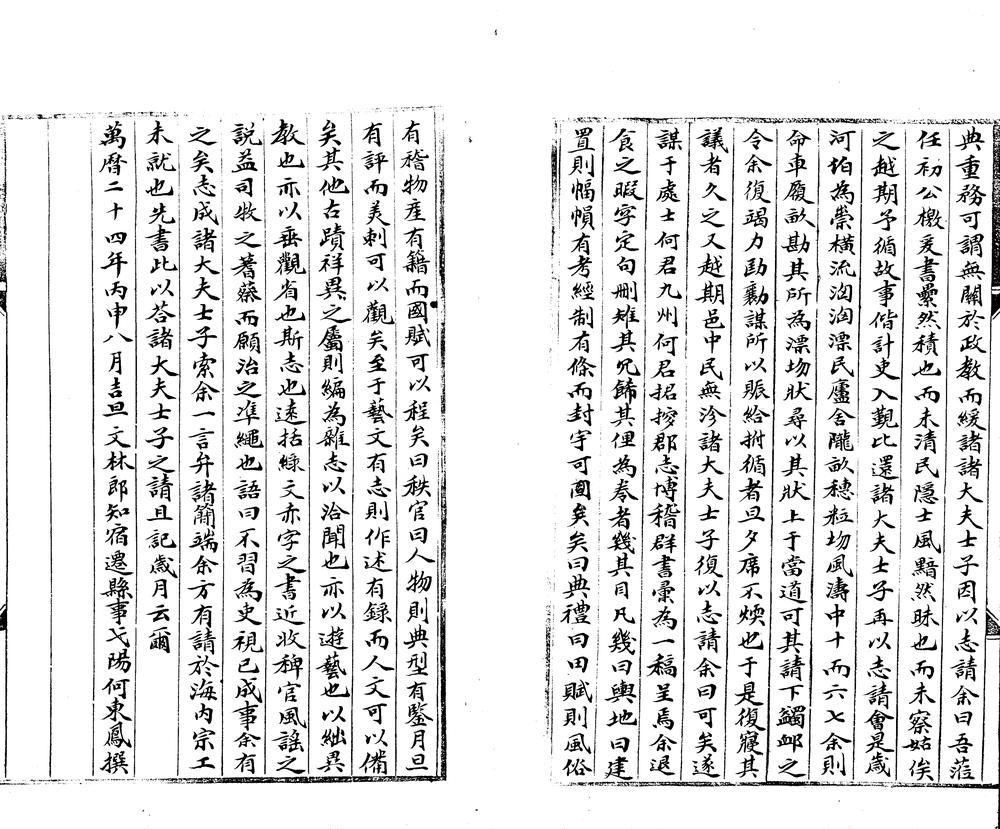 典重務可謂無關於政教而緩諸諸大夫士子因以志請余曰吾蒞
任初公檄爰書纍然積也而未清民隱士風黯然昧也而未察姑俟
之越期予循故事偕計吏入覲比還諸大夫士子再以志請會是歲
河伯為祟橫流洶洶漂民廬舍隴畝穗粒均風濤中十而六七余則
命車履畝勘其所為漂均狀尋以其狀上于當道可其請下蠲邮之
令余復竭力劻勷謀所以賑給拊循者旦夕席不煖也于是復寢其
議者久之又越期邑中民無沴諸大夫士子復以志請余曰可矣遂
謀于處士何君九州何君招撡郡志博稽群書彙為一稿呈焉余退
食之暇字定句刪雉其冗歸其俚為卷者幾其目凡幾曰輿地曰建
置則幅幀有考經制有條而封宇可圖矣矣曰典禮曰田賦則風俗
有稽物產有籍而國賦可以程矣曰秩官曰人物則典型有鑒月旦
有評而美刺可以觀矣至于藝文有志則作述有錄而人文可以備
矣其他古蹟祥異之屬則編為雜志以洽聞也亦以遊藝也以絀異
教也亦以垂觀省也斯志也遠括綠文赤字之書近收稗官風謠之
說益司牧之蓍蔡而願治之準繩也語曰不習為吏視已成事余有
之矣志成諸大夫士子索余一言弁諸簡端余方有請於海內宗工
未就也先書此以荅諸大夫士子之請且記歲月云爾
萬曆二十四年丙申八月吉旦文林郎知宿遷縣事弋陽何東鳳撰